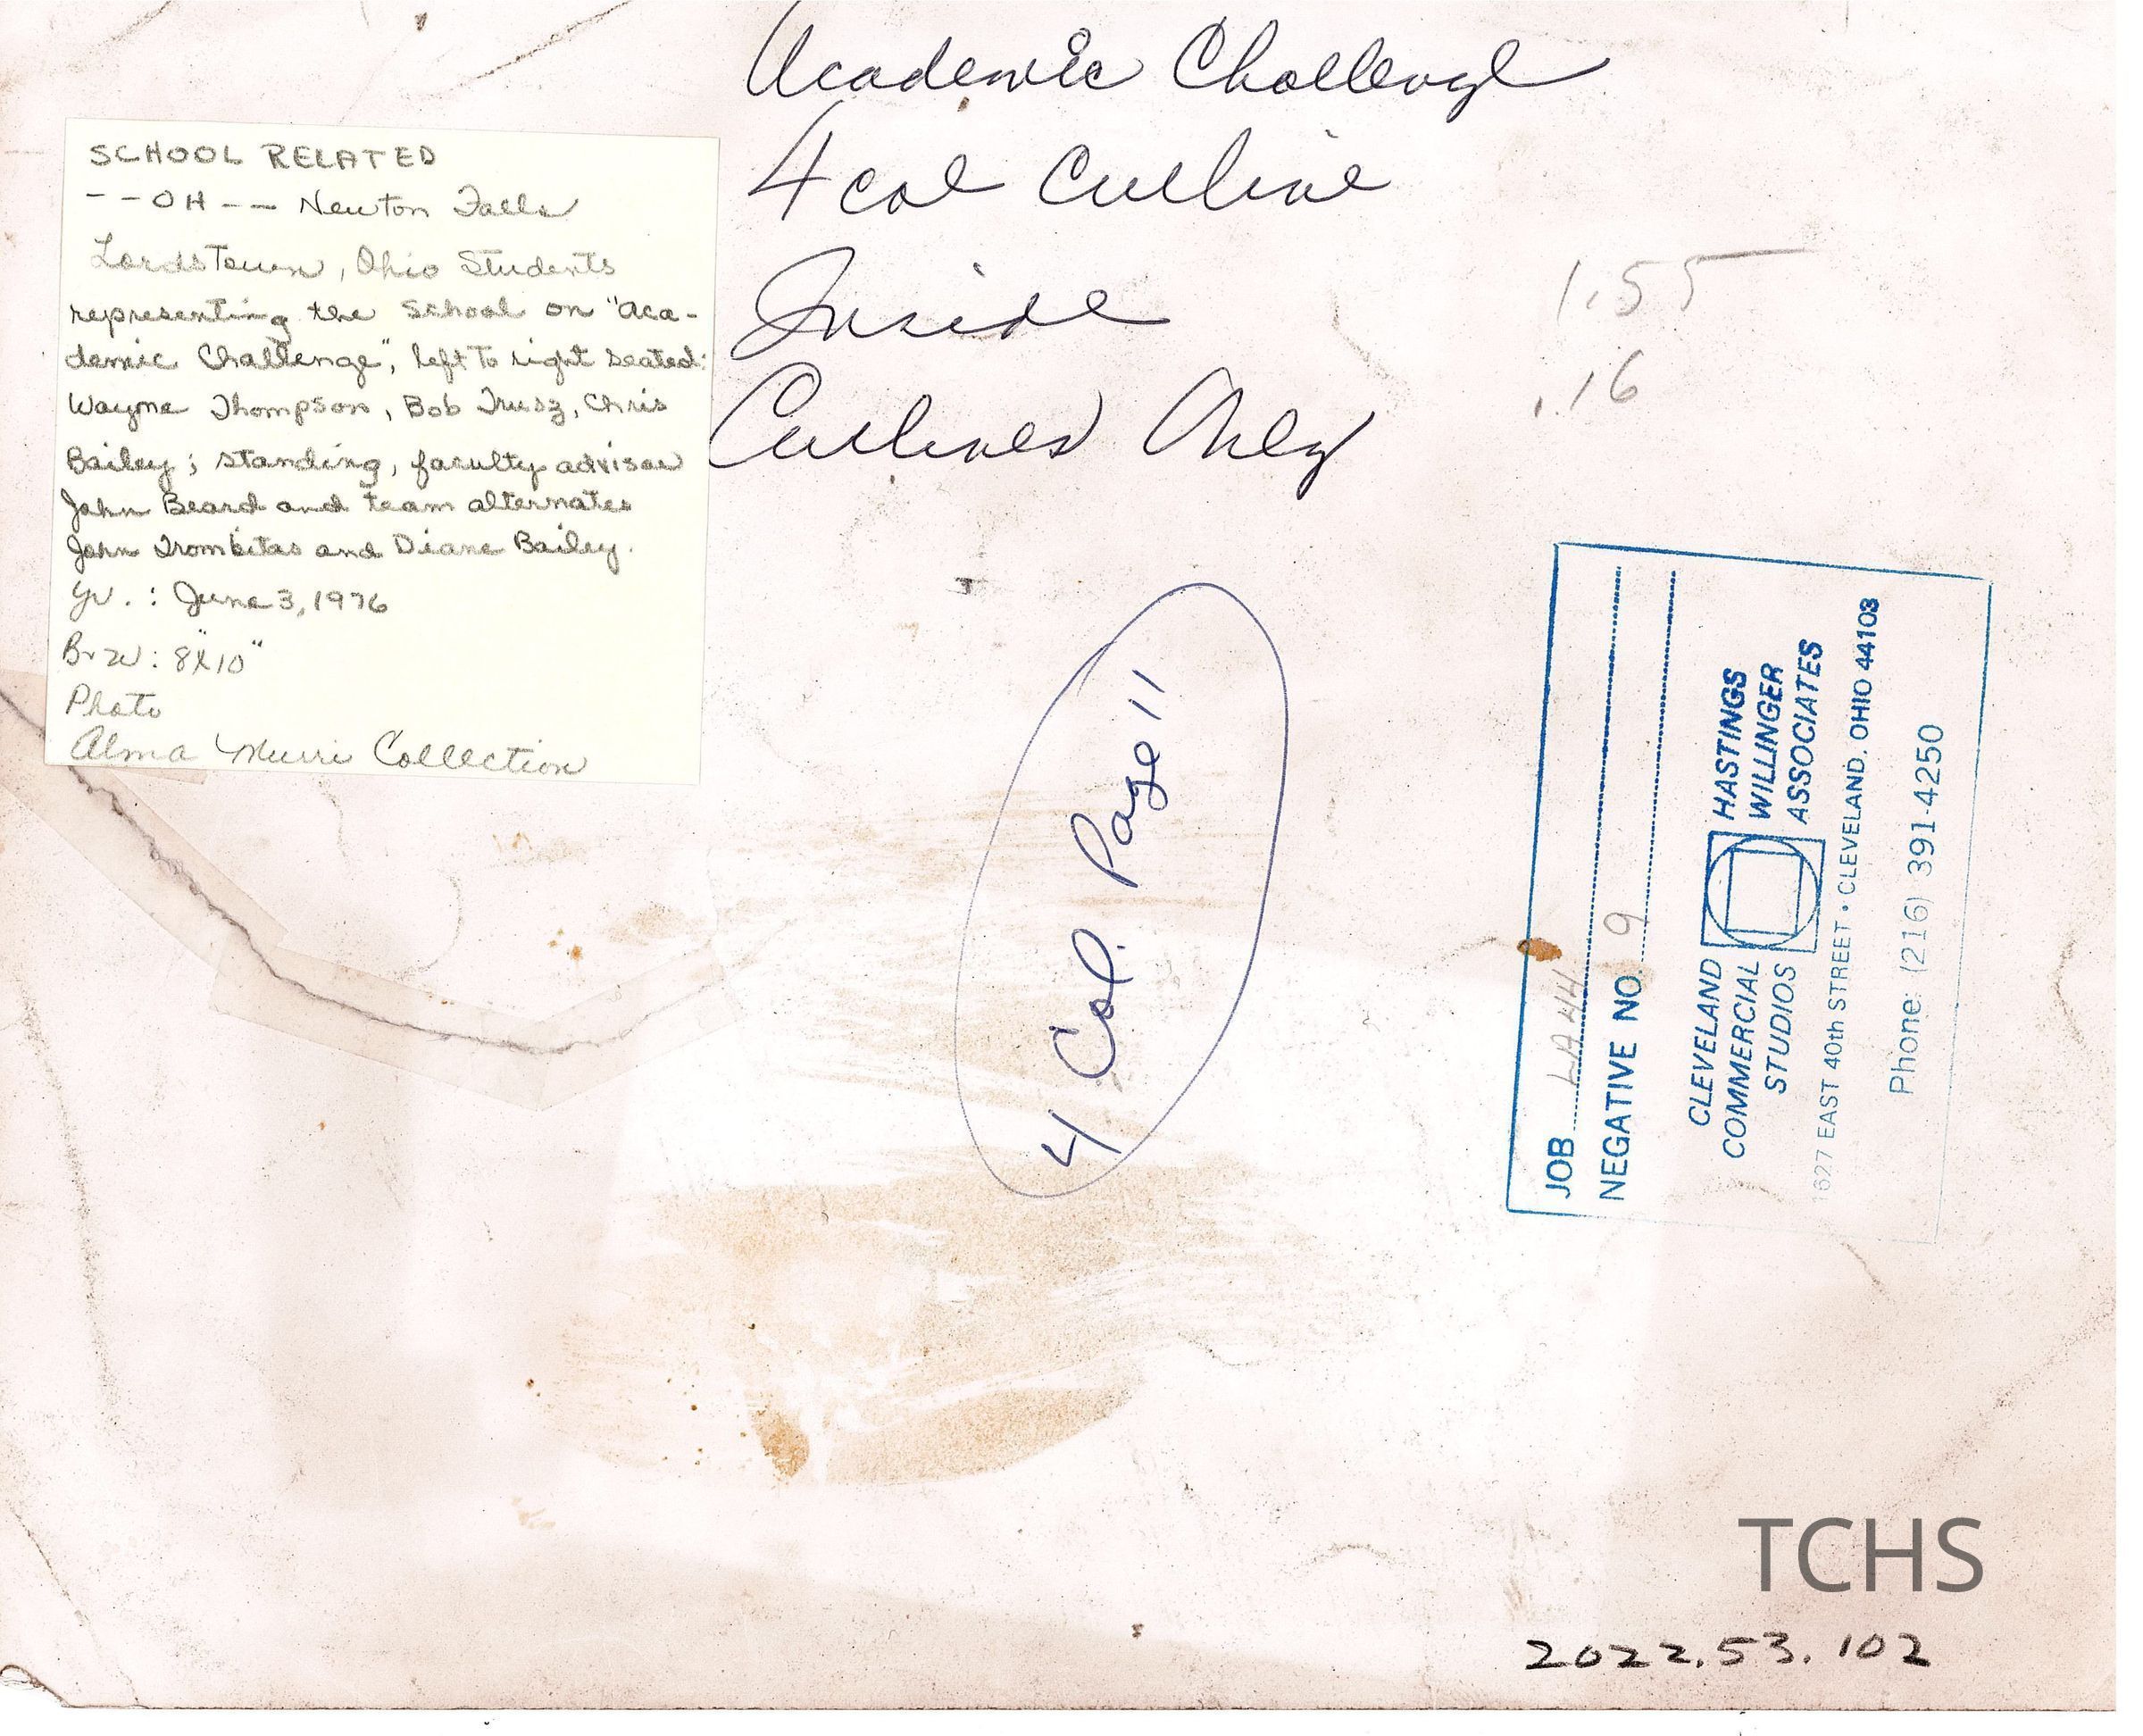 Academic Challenge
4 col Cutline
Inside
Cutlines Only
1.55
.16
SCHOOL RELATED
--OH-- Newton Falls
Lordstown, Ohio Students
representing the School on "Aca-
demic Challenge", left to right seated:
Wayne Thompson, Bob Trusz, Chris
Bailey; standing, faculty advisor
John Beard and team alternates
John Trombitas and Diane Bailey.
Yr.: June 3, 1976
B&W: 8"X10"
Photo
Alma Murri Collection
4 Col. Page 11
JOB LA44
NEGATIVE NO. 9
CLEVELAND COMMERCIAL STUDIOS
HASTINGS WILLINGER ASSOCIATES
1627 EAST 40th STREET • CLEVELAND, OHIO 44103
Phone: (216) 391-4250
TCHS
2022.53.102